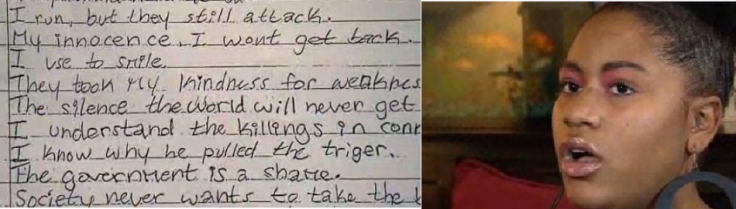 I run, but they still attack.
My innocence, I wont get back.
I use to smile.
They took my kindness for weaknes
The silence the world will never get
I understand the killings in conn
I know why he pulled the triger.
The government is a shame.
Society never wants to take the